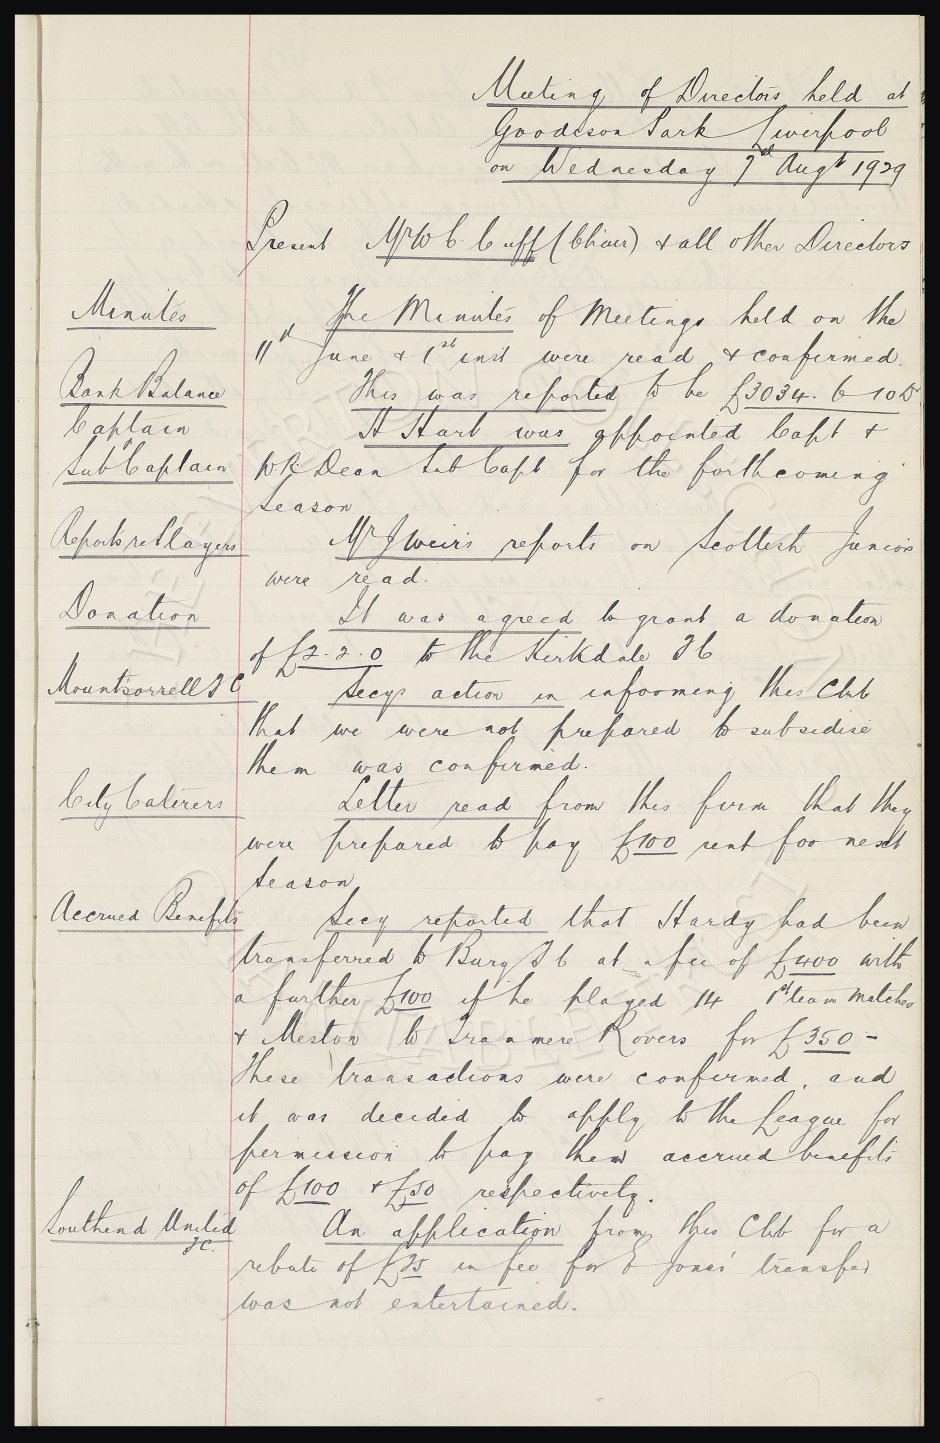 Meeting of Directors held at
Goodison Park Liverpool
on Wednesday 7th Augt 1929
Present Mr W C Cuff (Chair) & all other Directors
Minutes
The Minutes of Meetings held on the
11th June & 1st inst were read & confirmed.
Bank Balance
This was reported to be £3034. 6 10 D
Captain
H Hart was appointed Capt &
Sub Captain
W R Dean Sub Capt for the forthcoming
Season
Reports re Players
Mr J Weir's reports on Scottish Juniors
were read.
Donation
It was agreed to grant a donation
of £2. 2. 0 to the Kirkdale F C
Mountsorrell F C
Secys action in informing this Club
that we were not prepared to subsidise
them was confirmed.
City Caterers
Letter read from this firm that they
were prepared to pay £100 rent for next
Season
Accrued Benefits
Secy reported that Hardy had been
transferred to Bury F C at a fee of £400 with
a further £100 if he played 14 1st team matches
& Meston to Tranmere Rovers for £350 -
These transactions were confirmed. and
it was decided to apply to the League for
permission to pay them accrued benefits
of £100 & £50 respectively.
Southend United
F C.
An application from this Club for a
rebate of £25 in fee for Jones' transfer
was not entertained.